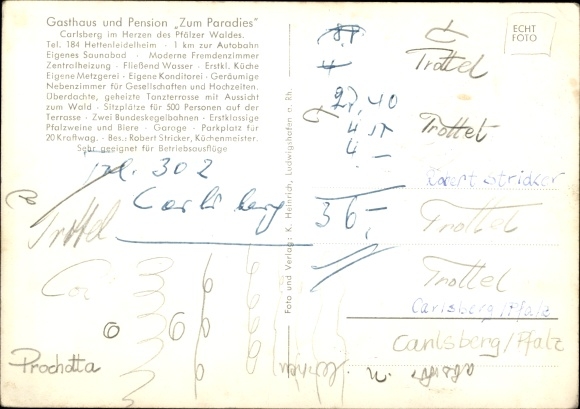 Gasthaus und Pension „Zum Paradies"
Carlsberg im Herzen des Pfälzer Waldes.
Tel. 184 Hettenleidelheim · 1 km zur Autobahn
Eigenes Saunabad · Moderne Fremdenzimmer
Zentralheizung · Fließend Wasser · Erstkl. Küche
Eigene Metzgerei · Eigene Konditorei · Geräumige
Nebenzimmer für Gesellschaften und Hochzeiten.
Überdachte, geheizte Tanzterrasse mit Aussicht
zum Wald · Sitzplätze für 500 Personen auf der
Terrasse · Zwei Bundeskegelbahnen · Erstklassige
Pfalzweine und Biere · Garage · Parkplatz für
20 Kraftwag. · Bes.: Robert Stricker, Küchenmeister.
Sehr geeignet für Betriebsausflüge
302
Carlsberg
Trottel
Prochotta
Foto und Verlag: K. Heinrich, Ludwigshafen a. Rh.
ECHT
FOTO
27,40
4
36,-
Trottel
Trottel
Robert Stricker
Trottel
Trottel
Carlsberg/Pfalz
Carlsberg/Pfalz